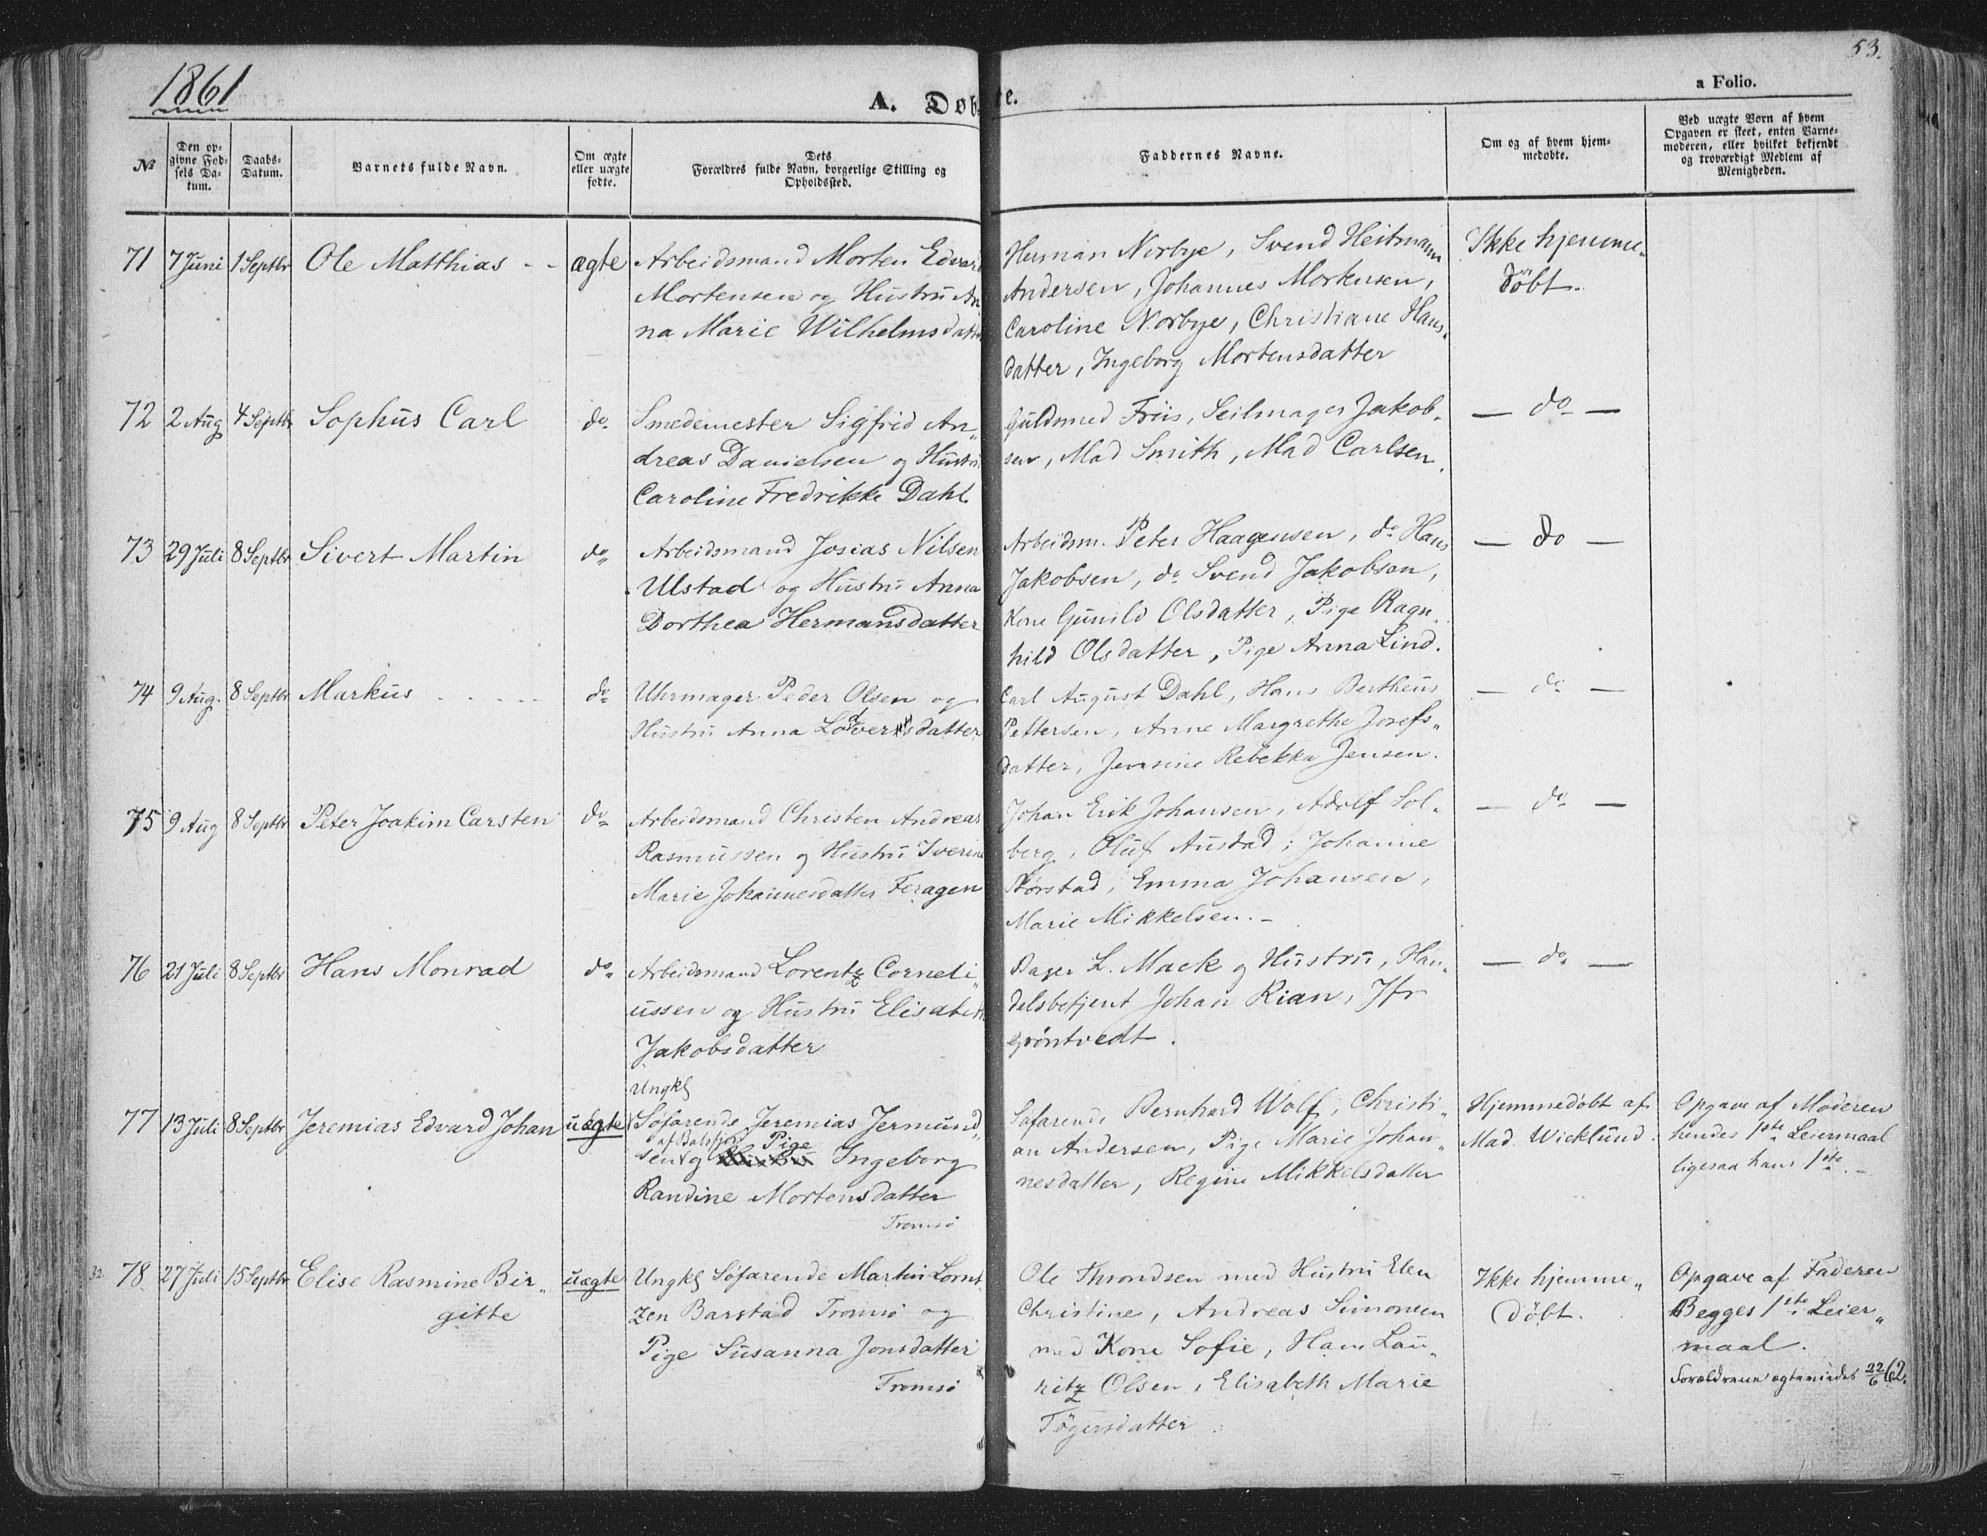 1861
53.
A. Døbte.
a Folio.
№
Den opgivne Fødsels Datum.
Daabs-Datum.
Barnets fulde Navn.
Om ægte eller uægte fødte.
Dets Forældres fulde Navn, borgerlige Stilling og Opholdssted.
Faddernes Navne.
Om og af hvem hjemmedøbte.
Ved uægte Børn af hvem Opgaven er skeet, enten Barnemoderen, eller hvilket bekjendt og troværdigt Medlem af Menigheden.
71 7 Juni 1 Septbr Ole Matthias - - ægte
Arbeidsmand Morten Edvard
Mortensen og Hustru An
na Marie Wilhelmsdatter
Herman Norbye, Svend Heitmann
Andersen, Johannes Mortensen,
Caroline Norbye, Christiane Hans-
datter, Ingeborg Mortensdatter
Ikke hjemme-
døbt.
72 2 Aug 4 Septbr Sophus Carl do
Smedemester Sigfrid An-
dreas Danielsen og Hustru
Caroline Fredrikke Dahl.
Guldsmed Friis, Seilmager Jakob-
sen, Mad Smith, Mad Carlsen.
— do —
73 29 Juli 8 Septbr Sivert Martin do
Arbeidsmand Josias Nilsen
Ulstad og Hustru Anna
Dorthea Hermansdatter
Arbeidsm. Peter Haagensen, do Hans
Jakobsen, do Svend Jakobsen,
Kone Gunild Olsdatter, Pige Ragn-
hild Olsdatter, Pige Anna Lind.
— do —
74 9 Aug. 8 Septbr Markus - - - - do
Uhrmager Peder Olsen og
Hustru Anna datter
Carl August Dahl, Hans Bertheus
Pettersen, Anne Margrethe Josefs-
datter, Jensine Rebekka Jensen.
— do —
75 9 Aug 8 Septbr Peter Joakim Carsten do
Arbeidsmand Christen Andreas
Rasmussen og Hustru Iverine
Marie Johannesdatter Feragen
Johan Erik Johansen, Adolf Sol-
berg, Oluf Austad, Johanne
Størstad, Emma Johansen,
Marie Mikkelsen. -
— do —
76 21 Juli 8 Septbr Hans Monrad do
Arbeidsmand Lorentz Corneli-
ussen og Hustru Elisabeth
Jakobsdatter
Bager L. Mack og Hustru, Han-
delsbetjent Johan Rian, Jfr
Grøntvedt.
— do —
77 13 Juli 8 Septbr Jeremias Edvard Johan uægte
Ungkl
Søfarende Jeremias Jermund-
af Balsfjor Pige
sen og Ingeborg
Randine Mortensdatter
Tromsø
Søfarende Bernhard Wolf, Christi-
an Andersen, Pige Marie Johan-
nesdatter, Regine Mikkelsdatter
Hjemmedøbt af
Mad. Wicklund.
Opgave af Moderen
hendes 1ste Leiermaal
ligesaa hans 1ste. -
32 78 27 Juli 15 Septbr Elise Rasmine Bir-
gitte
uægte
Ungkl Søfarende Martin Lornt
zen Barstad Tromsø og
Pige Susanna Jonsdatter
Tromsø
Ole Throndsen med Hustru Elen
Christine, Andreas Simonsen
med Kone Sofie, Hans Lau-
ritz Olsen, Elisabeth Marie
Tøgersdatter.
Ikke hjemme-
døbt.
Opgave af Faderen
Begges 1ste Leier-
maal.
Forældrene ægteviedes 22/6 62.